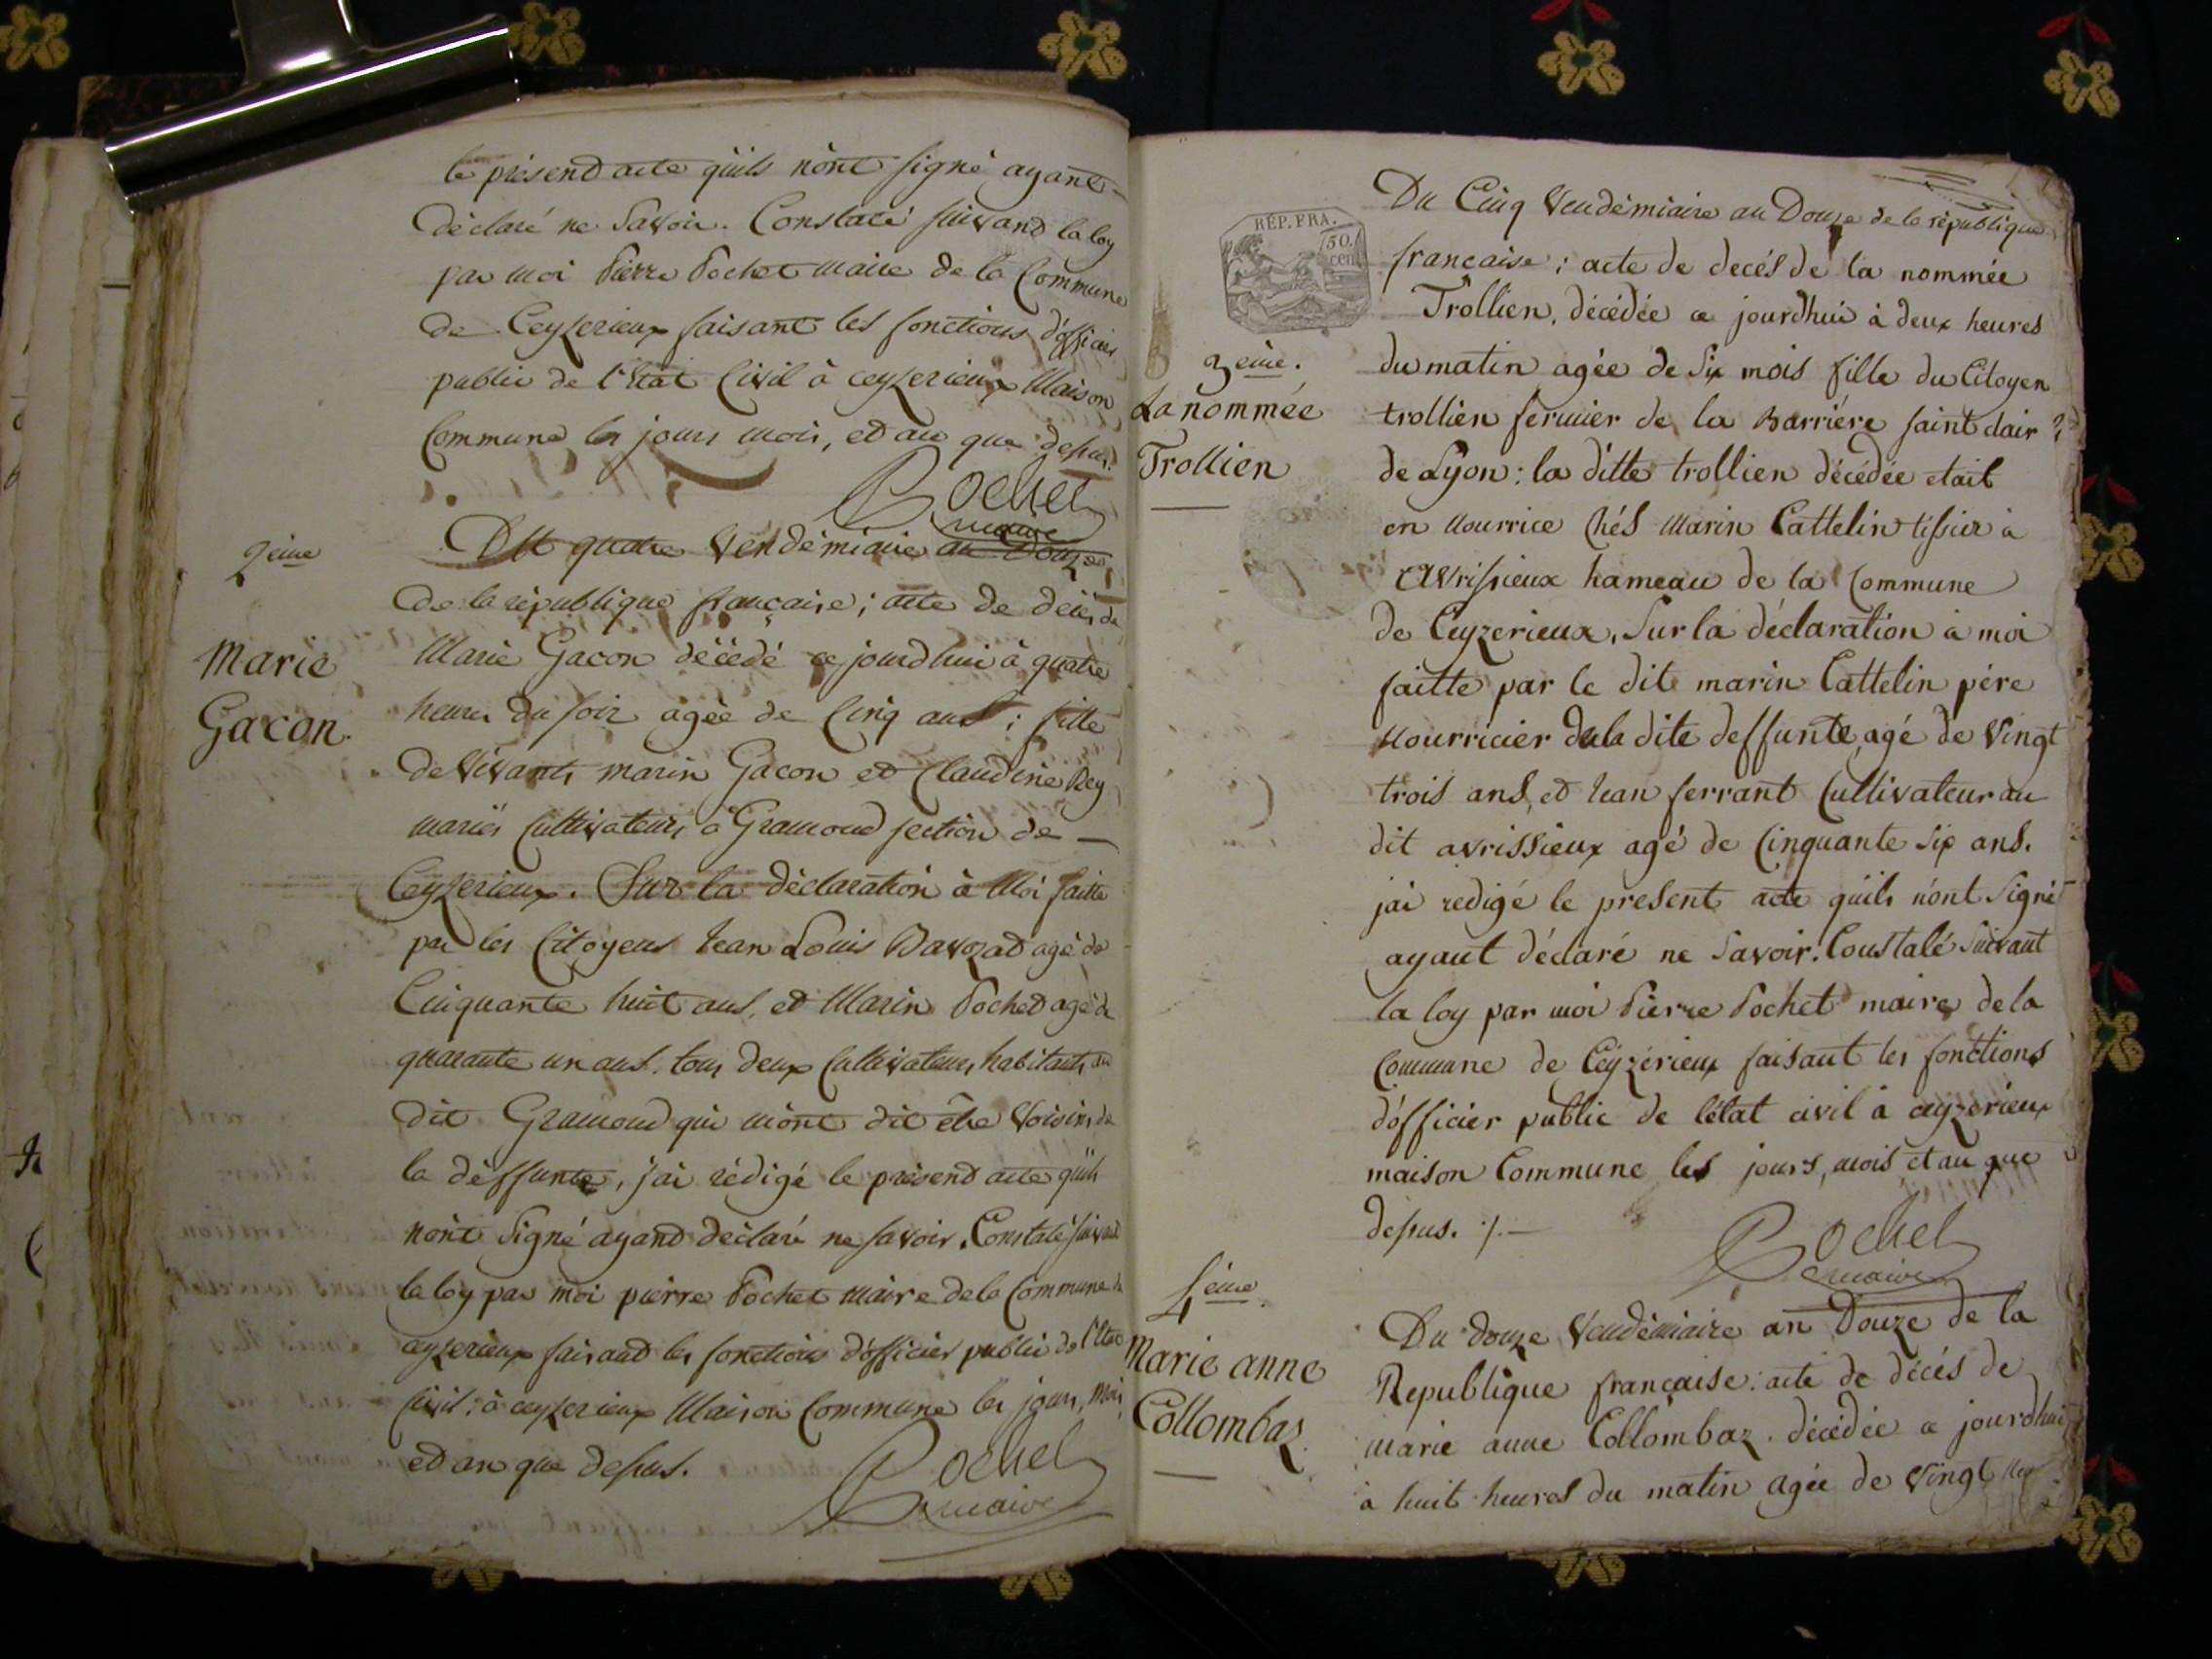 le présend acte qu'ils n'ont signé ayant
déclaré ne Savoir. Constaté suivand la loy
par moi Pierre Pochet maire de la Commune
de Ceyzerieux faisant les fonctions d'officier
public de l'Etat Civil à ceyzerieux Maison
Commune les jours mois, et an que dessus.
Pochet
maire
2eme
Du quatre Vendémiaire an Douze
de la république française; acte de décès de
Marie
Gacon.
Marie Gacon décédé ce jourdhui à quatre
heures du soir agée de Cinq ans; fille
de vivants marin Gacon et Claudine Rey
mariés Cultivateurs à Gramond section de
Ceyzerieux. Sur la déclaration à Moi faitte
par les Citoyens Jean Louis Bavozad agé de
Cinquante huit ans, et Marin Pochet agé de
quarante un ans. tous deux Cultivateurs habitants au
dit Gramond qui m'ont dit être Voisins de
la deffunte, j'ai rédigé le présend acte qu'ils
n'ont Signé ayand déclaré ne savoir. Constaté suivand
la loy par moi pierre Pochet maire de la Commune de
ceyzerieux faisand les fonctions d'officier public de l'Etat
Civil: à ceyzerieux Maison Commune les jours, mois
et an que dessus.
Pochet
maire
REP. FRA.
50.
cen.
Du Cinq Vendémiaire an Douze de la république
française; acte de decés de la nommée
3eme.
La nommée
Trollien
Trollien, décédée ce jourdhui à deux heures
du matin agée de Six mois fille du Citoyen
trollien fermier de la Barriére saint clair
de Lyon: la ditte trollien décédée etait
en Nourrice Chés Marin Cattelin tissier à
Avrissieux hameau de la Commune
de Ceyzerieux, Sur la déclaration a moi
faitte par le dit marin Cattelin pére
Nourricier de la dite deffunte, agé de Vingt
trois ans, et Jean ferrant Cultivateur au
dit avrissieux agé de Cinquante Six ans.
jai redigé le present acte qu'ils n'ont Signé
ayant déclaré ne Savoir. Constaté Suivant
la loy par moi Pierre Pochet maire de la
Commune de Céyzérieux faisant les fonctions
d'officier public de l'état civil à ceyzerieux
maison Commune les jours, mois et an que
dessus. ./.
Pochet
maire
4eme.
Marie anne
Collombaz.
Du douze Vendémiaire an Douze de la
Republique française: acte de décés de
marie anne Collombaz. décédée ce jourdhui
à huit heures du matin agée de Vingt